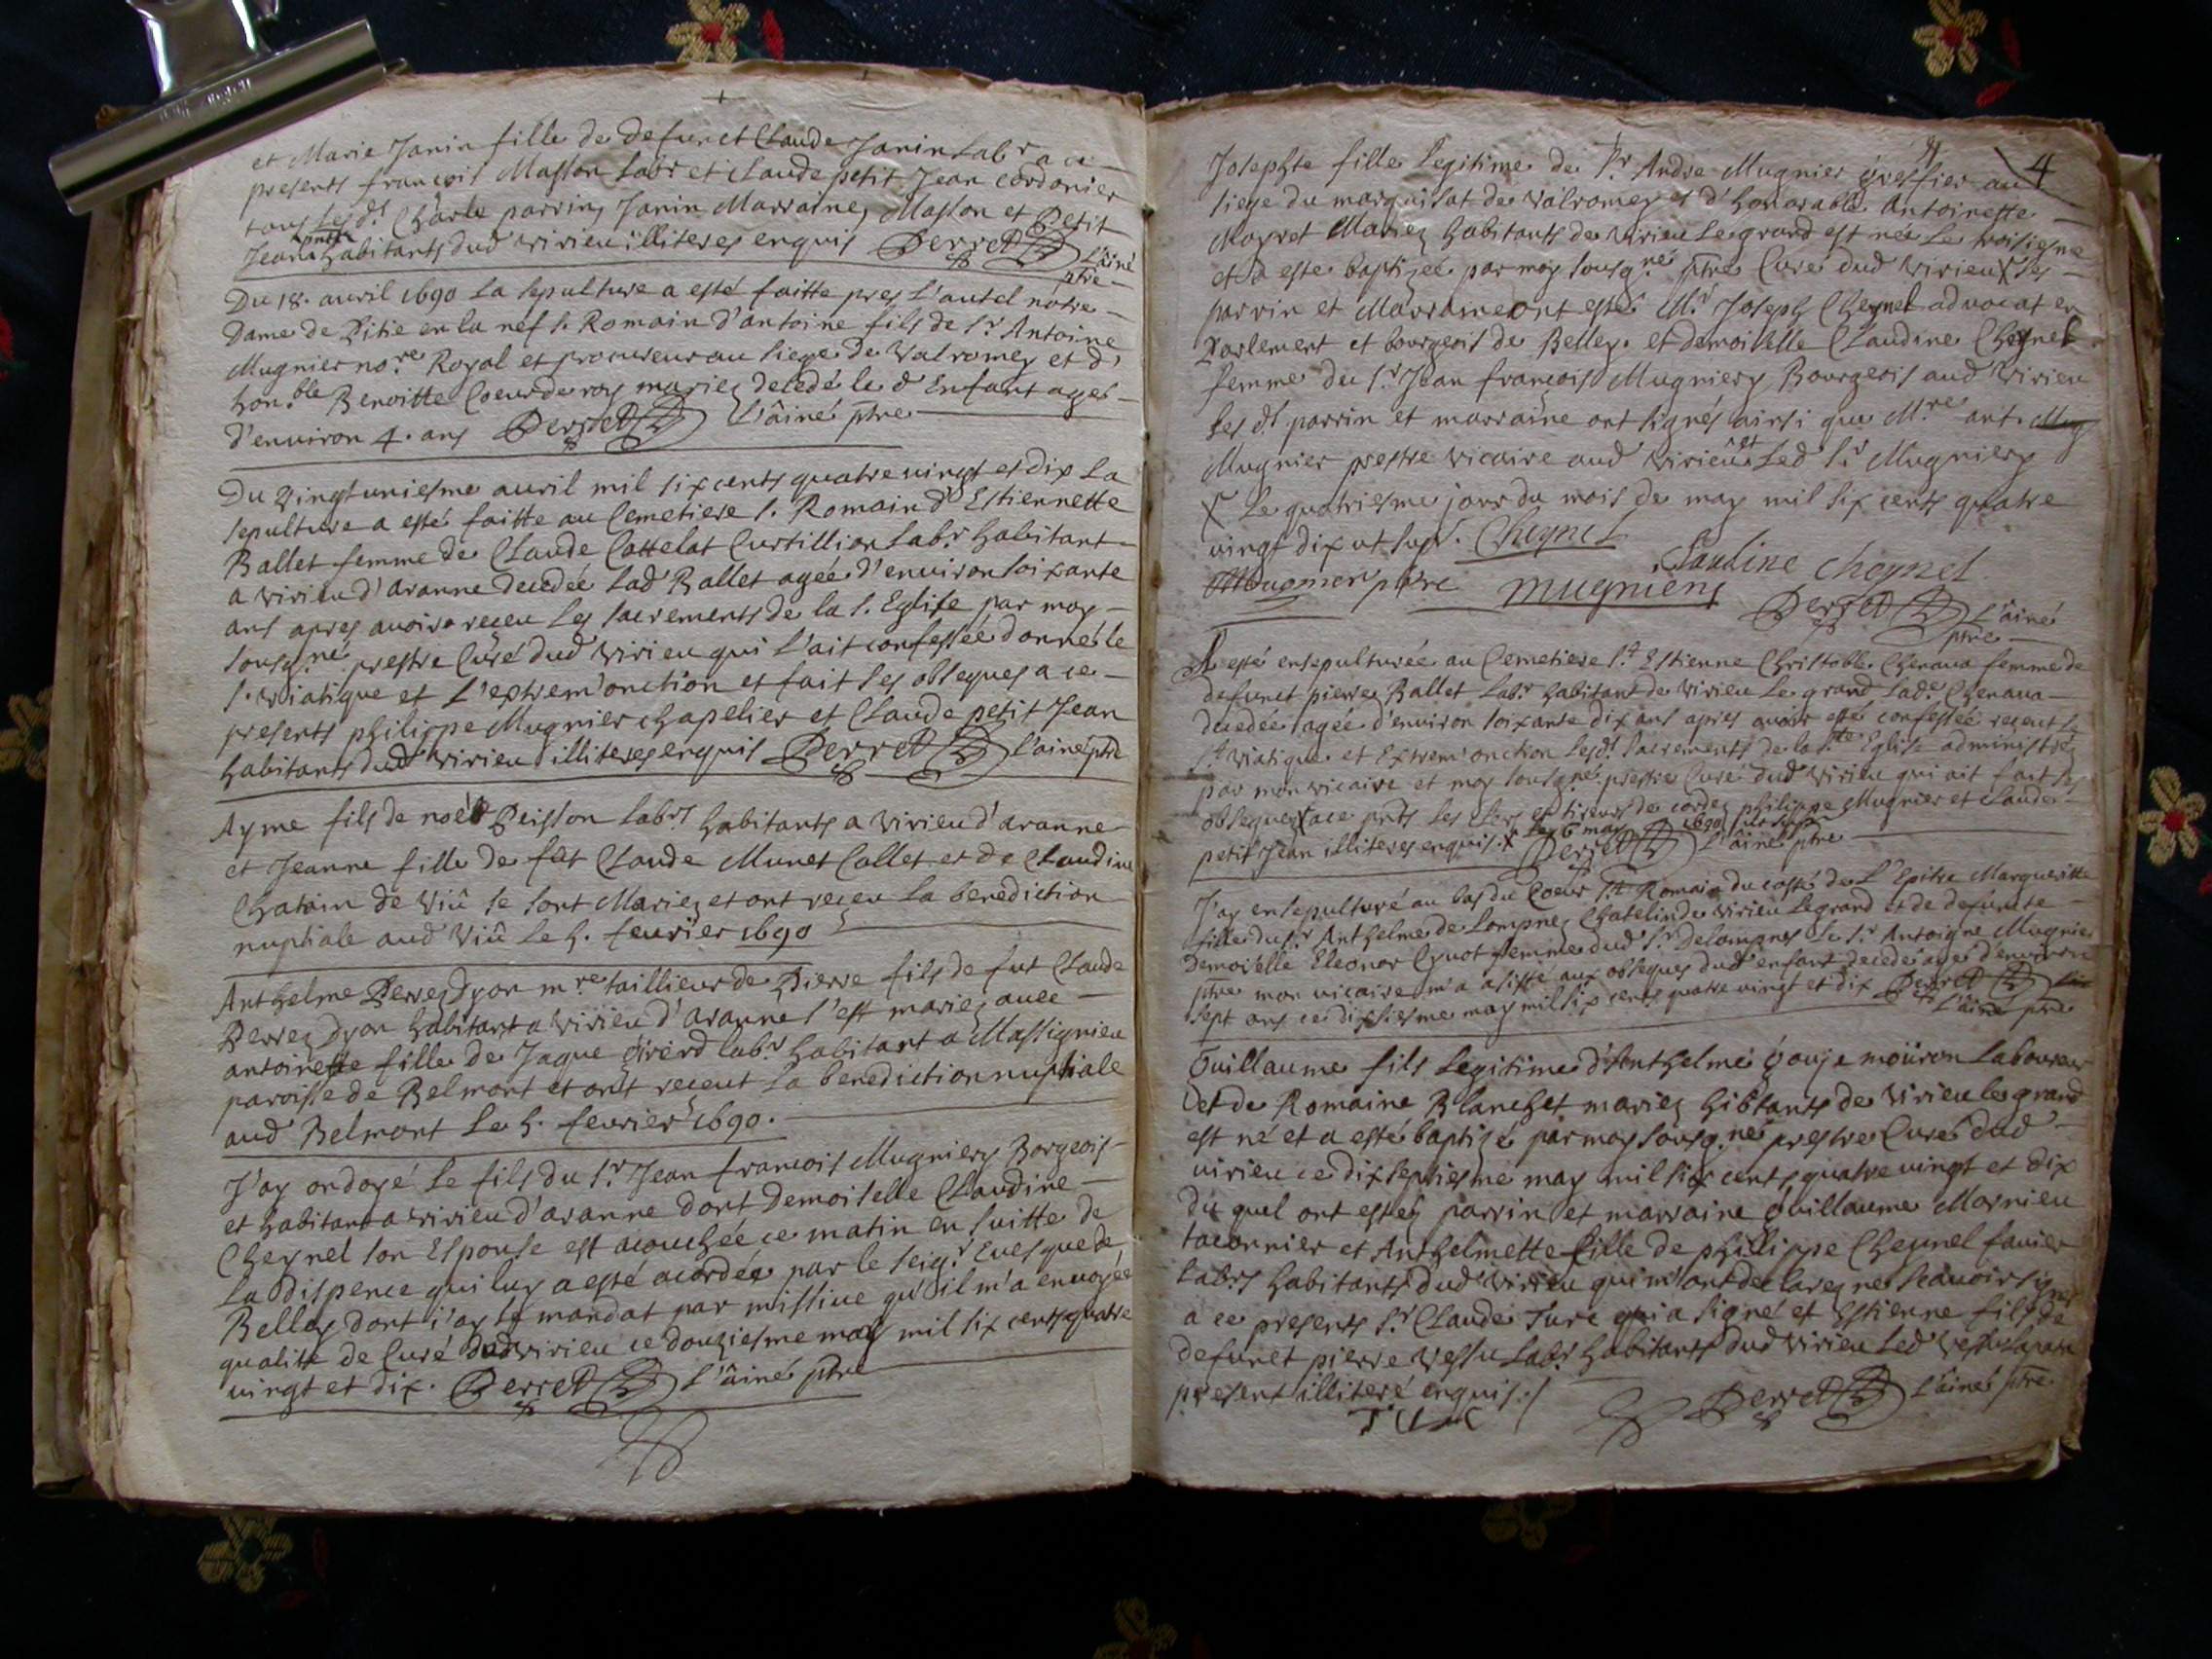 et Marie Janin fille de defunct Claude Janin Labr a ce
presents françois Masson Labr et claude petit Jean cordonier
tous les dt Charle parrin, Janin Marraine, Masson et Petit
Jean pnts habitants dud virieu illiteres enquis Perret L'ainé
ptre
Du 18. auril 1690 La sepulture a esté faitte pres l'autel notre
Dame de Pitie en la nef s. Romain d'antoine fils de sr Antoine
Mugnier no.re Royal et procureur au siege de Valromey et d'
hon.ble Benoitte Coeurderoy mariez decedé led Enfant agé
d'enuiron 4. ans Perret L'ainé ptre
Du Vingtuniesme auril mil sixcents quatre uingt et dix La
sepulture a esté faitte au Cemetiere s. Romain d'Estiennette
Ballet femme de Claude Cottelat Curtillion Labr habitant
a virieu d'aranne decedée Lad Ballet agée d'enuiron soixante
ans apres auoir receu Les sacrements de la s. Eglise par moy
sousg.né prestre Curé dud virieu qui L'ait confessée donné le
s. viatique et L'extrem'onction et fait ses obseques a ce
presents philippe Mugnier chapelier et Claude petit Jean
habitants dud virieu illiteres enquis Perret L'ainé ptre
Ayme fils de noel Peisson Labrs habitants a virieu d'aranne
et Jeanne fille de fut Claude Munet Collet et de Claudine
Chatain de Viû se sont Mariez et ont receu La benediction
nuptiale aud Viû Le 5. feurier 1690
Anthelme Perrez dyon m.re taillieur de Pierre fils de fut Claude
Perrez dyon habitant a virieu d'aranne s'est mariez auec
antoinette fille de Jaque Girerd labr habitant a Massignieu
paroisse de Belmont et ont receut La benediction nuptiale
aud Belmont Le 5. feurier 1690.
J'ay ondoyé Le fils du sr Jean francois Mugniery Borgeois
et habitant a virieu d'aranne dont Demoiselle Claudine
Cheynel son Espouse est acouchée ce matin en suitte de
La dispence qui luy a esté acordée par le seigr Euesque de
Belley dont i'ay le mandat par missiue qu'il m'a enuoyée
qualité de Curé dud virieu ce douziesme may mil six cents quatre
uingt et dix. Perret L'ainé ptre
4
Josephte fille legitime de sr Andre Mugnier greffier au
siege du marquisat de Valromey et d'honorable Antoinette
Moyret Mariez habitants de virieu Legrand est née Le troisiesme
et a este baptizée par moy sousg.né ptre Curé dud virieu X Les
parrin et Marraine ont esté Mr Joseph Cheynel aduocat en
Parlement et bourgeois de Belley et demoiselle Claudine Cheynel
femme du sr Jean françois Mugniery Bourgeois aud virieu
Les dt parrin et marraine ont signés ainsi que M.re ant.
Mugnier prestre vicaire aud virieu et Led sr Mugniery
X Le quatriesme jour du mois de may mil six cents quatre
uingt dix ut sup. Cheynel
Claudine cheynel
Mugnier ptre mugniery
Perret L'ainé
ptre
A esté ensepulturée au Cemetiere st Estienne Christoble Chenaua femme de
defunct pierre Ballet Labr habitant de virieu Le grand Lade Chenaua
decedée agée d'enuiron soixante dix ans apres auoir esté confessée receut le
st viatique et Extrem'onction Lesdt sacrements de la s.te Eglise administrez
par mon vicaire et moy sousg.né prestre Curé dud virieu qui ait fait ses
obseques X a ce pnts Les clers et tireurs de cordes philippe Mugnier et claude
petit Jean illiteres enquis. X Le 6 may 1690 Perret L'ainé ptre
J'ay ensepulturé au bas du Coeur st Romain du costé de L'Epitre Margueritte
fille du sr Anthelme de Lompnes Chatelin de virieu Legrand et de defuncte
Demoiselle Eleonor Guot femme dud sr delompnes Le sr Antoigne Mugnier
ptre mon uicaire m'a asisté aux obseques dud enfant decedé agé d'enuiron
sept ans ce dixiesme may mil six cents quatre uingt et dix Perret
L'ainé ptre
Guillaume fils Legitime d'Anthelme Gouje moüron Laboureur
et de Romaine Blanchet mariez hibtants de virieu le grand
est né et a esté baptizé par moy sousg.né prestre Curé dud
uirieu ce dixseptiesme may mil six cents quatre uingt et dix
du quel ont estés parrin et marraine Guillaume Mornieu
taconnier et Anthelmette fille de phillippe Cheynel fauier
Labrs habitants dud virieu qui m'ont declarez ne scauoir signer
a ce presents sr Claude Turc qui a signé et Estienne fils de
defunct pierre vessu Labr habitants dud virieu Led vessu
present illiteré enquis./
Turc Perret L'ainé ptre